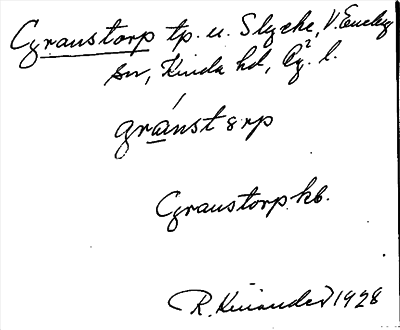 Granstorp tp. u. Slycke, V. Eneby
sn, Kinda hd, Ög. l.
gránstərp
Granstorp kb.
R. Kinander 1928